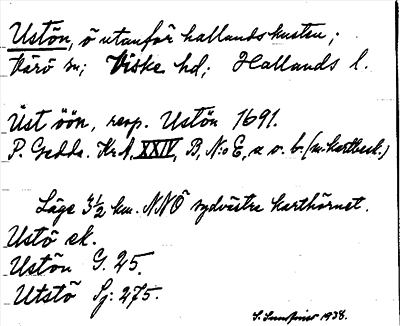 Ustön, ö utanför hallandskusten;
Värö sn; Viske hd; Hallands l.
Üst öön, resp. Ustön 1691.
P. Gedda. Kr.A. XXIV, B, N:o E, a o. b. (m. kartbesk.)
Läge 3½ km. NNÖ sydvästra karthörnet.
Ustö ek.
Ustön G. 25.
Utstö Sj: 275.
S. 1938.